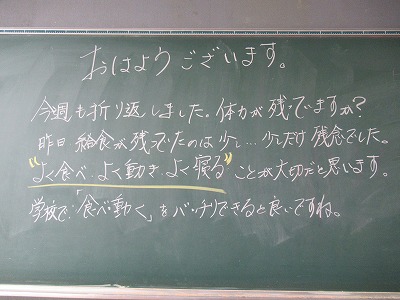 おはようございます。
今週も折り返しました。体力が残ってますか?
昨日 給食が残ってたのは少し…少しだけ残念でした。
"よく食べ、よく動き、よく寝る" ことが大切だと思います。
学校で「食べ・動く」をバッチリできると良いですね。